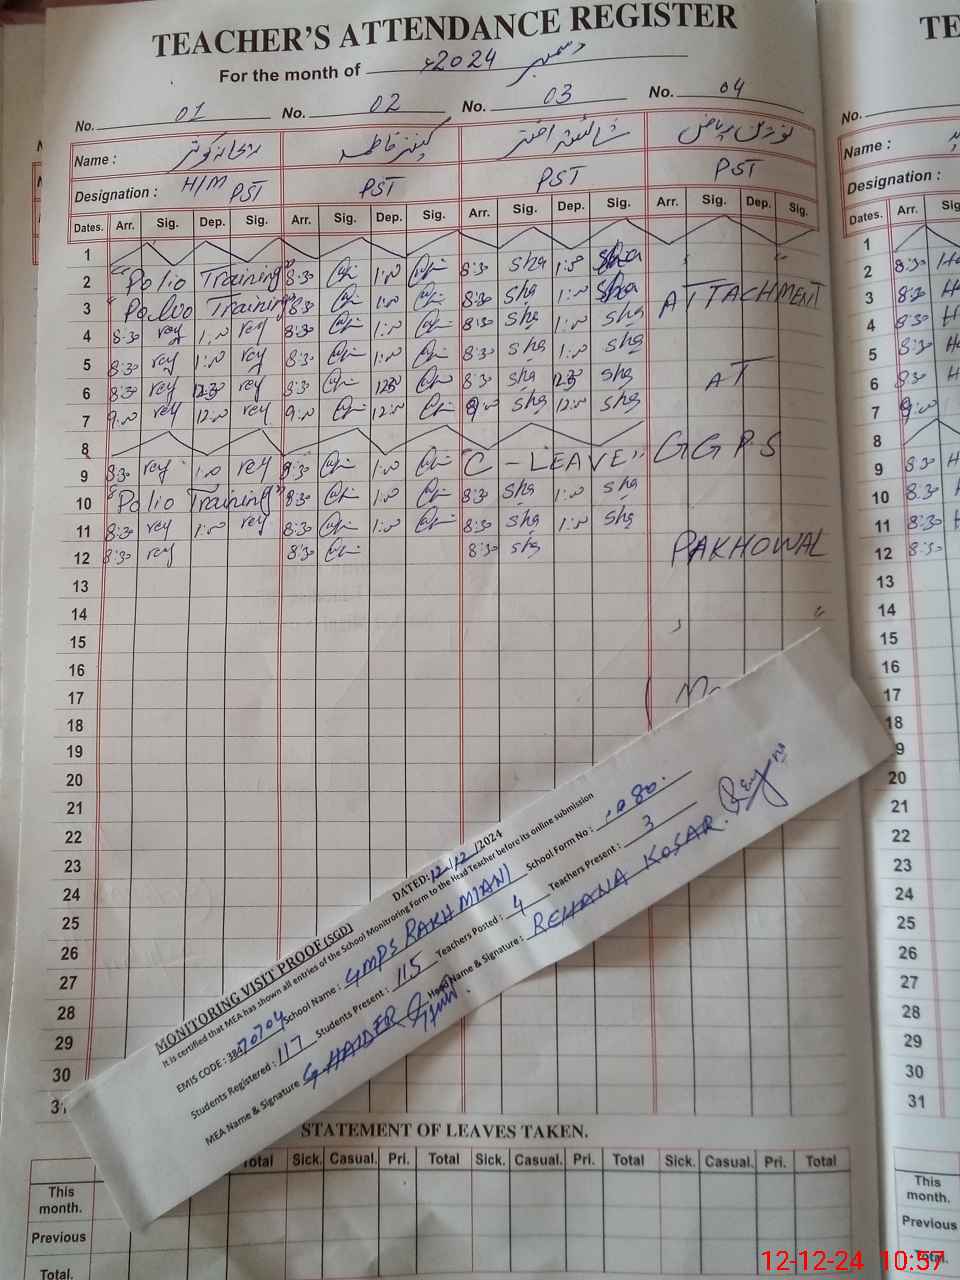 TEACHER'S ATTENDANCE REGISTER
For the month of دسمبر 2024ء
No. 01 No. 02 No. 03 No. 04
Name : ریحانہ کوثر کنیز فاطمہ شائستہ اختر نورین ریاض
Designation : H/M PST PST PST PST
Dates. Arr. Sig. Dep. Sig. Arr. Sig. Dep. Sig. Arr. Sig. Dep. Sig. Arr. Sig. Dep. Sig.
1
2 "Polio Training" 8:30 1:00 8:30 sha 1:00 sha
3 "Polio Training" 8:30 1:00 8:30 sha 1:00 sha ATTACHMENT
4 8:30 rey 1:00 rey 8:30 1:00 8:30 sha 1:00 sha
5 8:30 rey 1:00 rey 8:30 1:00 8:30 sha 1:00 sha
6 8:30 rey 12:30 rey 8:30 12:30 8:30 sha 12:30 sha AT
7 9:00 rey 12:00 rey 9:00 12:00 9:00 sha 12:00 sha
8
9 8:30 rey 1:00 rey 8:30 1:00 "C - LEAVE" GGPS
10 "Polio Training" 8:30 1:00 8:30 sha 1:00 sha
11 8:30 rey 1:00 rey 8:30 1:00 8:30 sha 1:00 sha
12 8:30 rey 8:30 8:30 sha PAKHOWAL
13
14
15
16
17
18
19
20
21
22
23
24
25
26
27
28
29
30
31
MONITORING VISIT PROOF (SGD) DATED: 12/12/2024
It is certified that MEA has shown all entries of the School Monitoring Form to the Head Teacher before its online submission
EMIS CODE : 38470704 School Name : GMPS RAKH MIANI School Form No :
Students Registered : 117 Students Present : 115 Teachers Posted : 4 Teachers Present : 3
MEA Name & Signature G HAIDER Head Name & Signature : REHANA KOSAR
STATEMENT OF LEAVES TAKEN.
Total Sick. Casual. Pri. Total Sick. Casual. Pri. Total Sick. Casual. Pri. Total
This month.
Previous
Total.
TE
No.
Name :
Designation :
Dates. Arr.
1
2 8:30
3 8:30
4 8:30
5 8:30
6 8:30
7 9:00
8
9 8:30
10 8:30
11 8:30
12 8:30
13
14
15
16
17
18
19
20
21
22
23
24
25
26
27
28
29
30
31
This month.
Previous
Total.
12-12-24 10:57